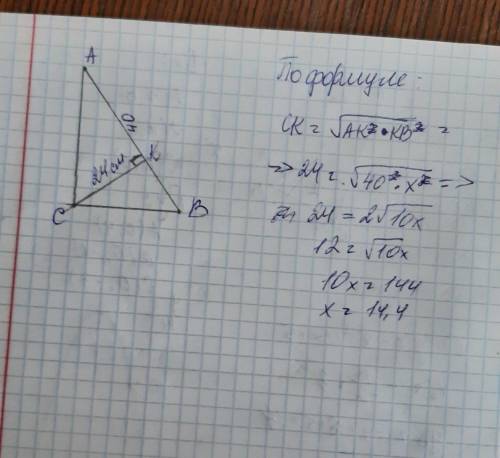 A
40
K
24 см
C
B
По формуле:
CK = √AK²•KB² =
=> 24 = √40²•x² =>
24 = 2√10x
12 = √10x
10x = 144
x = 14,4